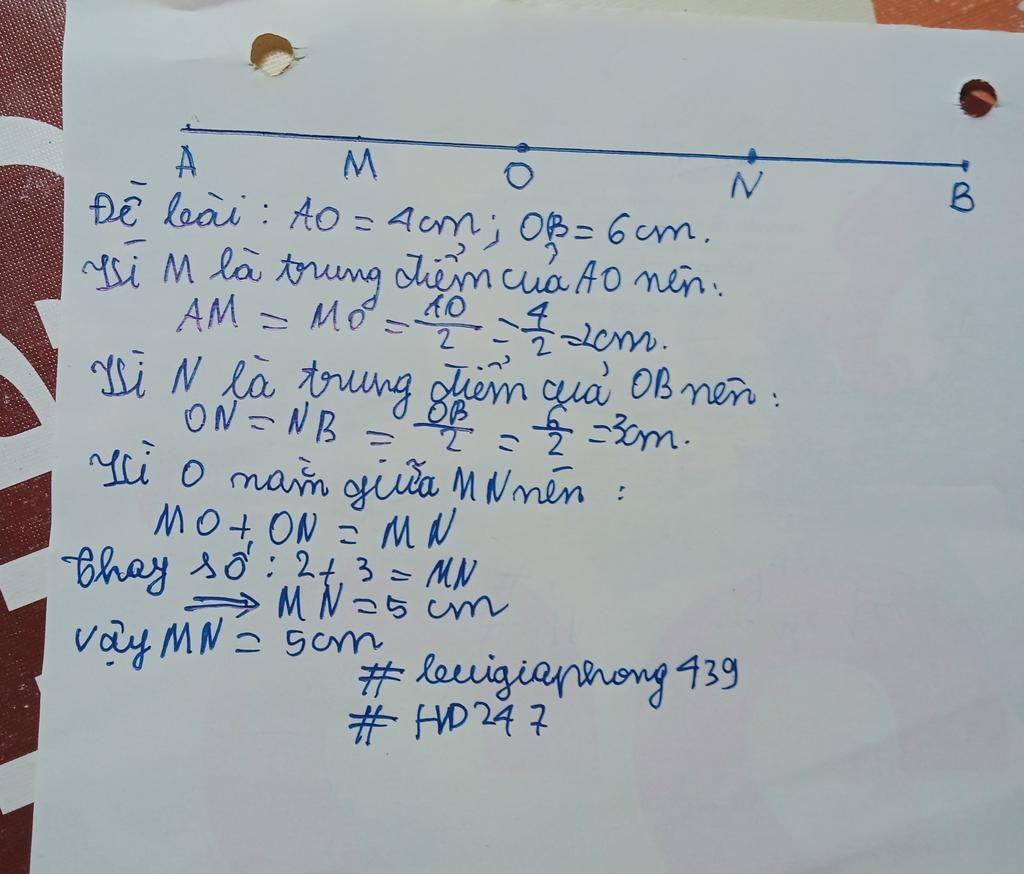 A M O N B
Đề bài : AO = 4cm ; OB = 6cm.
Vì M là trung điểm của AO nên :
AM = MO = AO/2 = 4/2 = 2cm.
Vì N là trung điểm của OB nên :
ON = NB = OB/2 = 6/2 = 3cm.
Vì O nằm giữa MN nên :
MO + ON = MN
Thay số : 2 + 3 = MN
⇒ MN = 5 cm
Vậy MN = 5cm
# buigiaphong439
# HD247